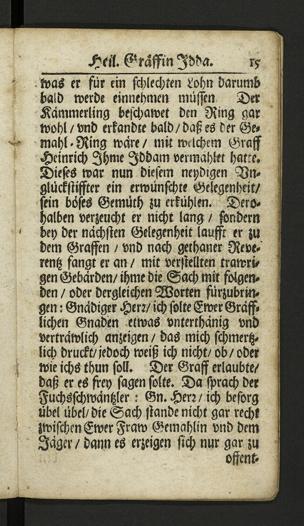 Heil. Gräffin Idda. 15
was er für ein schlechten Lohn darumb
bald werde einnehmen müssen Der
Kämmerling beschawet den Ring gar
wohl / vnd erkandte bald / daß es der Ge-
mahl-Ring wäre / mit welchem Graff
Heinrich Ihme Iddam vermahlet hatte.
Dieses war nun diesem neydigen Vn-
glückstiffter ein erwünschte Gelegenheit /
sein böses Gemüth zu erkühlen. Dero-
halben verzeucht er nicht lang / sondern
bey der nächsten Gelegenheit laufft er zu
dem Graffen / vnd nach gethaner Reve-
rentz fangt er an / mit verstellten trawri-
gen Gebärden / ihme die Sach mit folgen-
den / oder dergleichen Worten fürzubrin-
gen: Gnädiger Herz / ich solte Ewer Gräff-
lichen Gnaden etwas vnterthänig vnd
verträwlich anzeigen / das mich schmertz-
lich druckt / jedoch weiß ich nicht / ob / oder
wie ichs thun soll. Der Graff erlaubte /
daß er es frey sagen solte. Da sprach der
Fuchsschwäntzler: Gn. Herz / ich besorg
übel übel / die Sach stande nicht gar recht
zwischen Ewer Fraw Gemahlin vnd dem
Jäger / dann es erzeigen sich nur gar zu
offent-